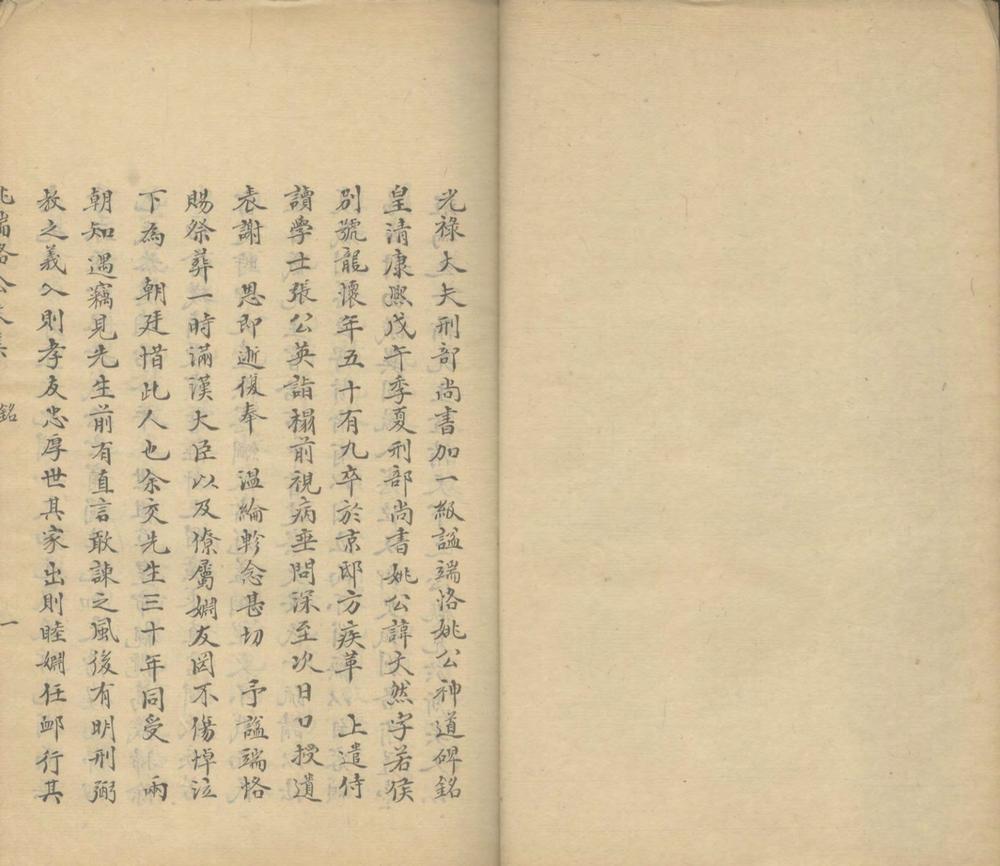 光祿大夫刑部尚書加一級謚端恪姚公神道碑銘
皇清康熙戊午季夏刑部尚書姚公諱文然字若侯
別號龍懷年五十有九卒於京邸方疾革　上遣侍
讀學士張公英詣榻前視病垂問深至次日口授遺
表謝　恩即逝復奉　溫綸軫念甚切　予謚端恪
賜祭葬一時滿漢大臣以及僚屬婣友罔不傷悼泣
下為　朝廷惜此人也余交先生三十年同受　兩
朝知遇竊見先生前有直言敢諫之風後有明刑弼
教之義入則孝友忠厚世其家出則睦婣任卹行其
姚端恪公文集　銘　一